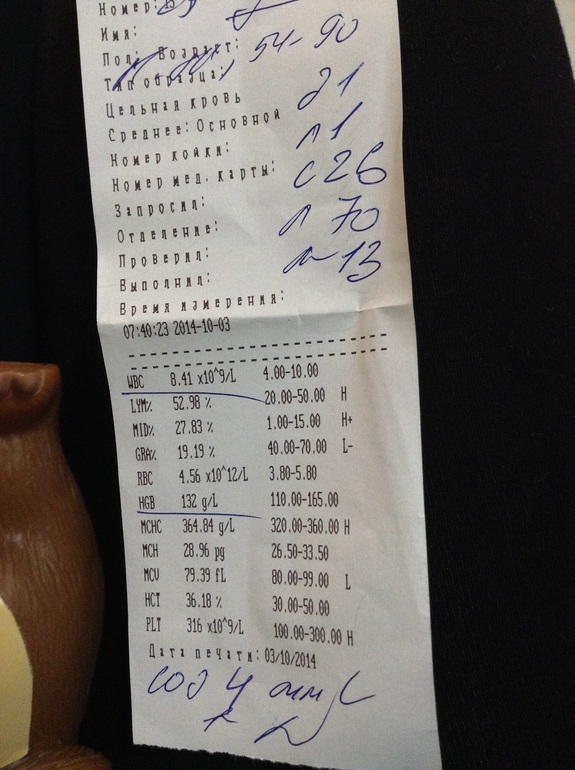 Номер:
Имя:
Пол: Возраст: 54-90
Тип образца:
Цельная кровь
Среднее: Основной
Номер койки:
Номер мед. карты: с 26
Запросил:
Отделение: л 70
Проверил: м 13
Выполнил:
Время измерения:
07:40:23 2014-10-03
WBC 8.41 x10^9/L 4.00-10.00
LYM% 52.98 % 20.00-50.00 H
MID% 27.83 % 1.00-15.00 H+
GRA% 19.19 % 40.00-70.00 L-
RBC 4.56 x10^12/L 3.80-5.80
HGB 132 g/L 110.00-165.00
MCHC 364.84 g/L 320.00-360.00 H
MCH 28.96 pg 26.50-33.50
MCV 79.39 fL 80.00-99.00 L
HCT 36.18 % 30.00-50.00
PLT 316 x10^9/L 100.00-300.00 H
Дата печати: 03/10/2014
соэ 4 мм/